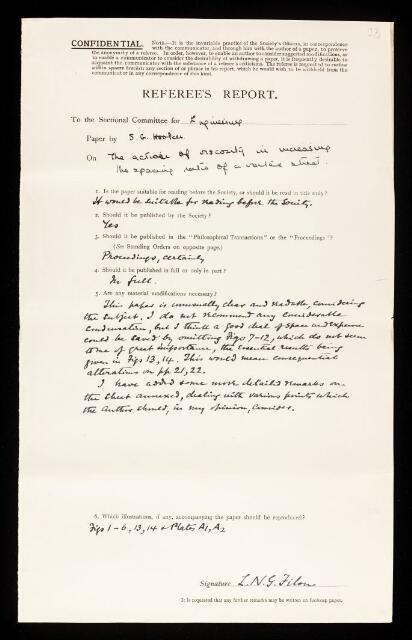 33
CONFIDENTIAL. NOTE.—It is the invariable practice of the Society's Officers, in correspondence
with the communicator, and through him with the author of a paper, to preserve
the anonymity of a referee. In order, however, to enable an author to consider suggested modifications, or
to enable a communicator to consider the desirability of withdrawing a paper, it is frequently desirable to
acquaint the communicator with the substance of a referee's criticisms. The referee is requested to enclose
within square brackets any section of or phrase in his report, which he would wish to be withheld from the
communicator in any correspondence of this kind.
REFEREE'S REPORT.
To the Sectional Committee for Engineering
Paper by S. G. Hooker
On The action of viscosity in increasing
the spacing ratio of a vortex street.
1. Is the paper suitable for reading before the Society, or should it be read in title only?
It would be suitable for reading before the Society.
2. Should it be published by the Society?
Yes
3. Should it be published in the "Philosophical Transactions" or the "Proceedings"?
(See Standing Orders on opposite page.)
Proceedings, certainly
4. Should it be published in full or only in part?
In full.
5. Are any material modifications necessary?
This paper is unusually clear and readable, considering
the subject. I do not recommend any considerable
condensation, but I think a good deal of space and expense
could be saved by omitting Figs 7-12, which do not seem
to me of great importance, the essential results being
given in Figs 13, 14. This would mean consequential
alterations on pp. 21, 22.
I have added some more detailed remarks on
the sheet annexed, dealing with various points which
the author should, in my opinion, consider.
6. Which illustrations, if any, accompanying the paper should be reproduced?
Figs 1-6, 13, 14 & Plates A1, A2
Signature L. N. G. Filon
It is requested that any further remarks may be written on foolscap paper.